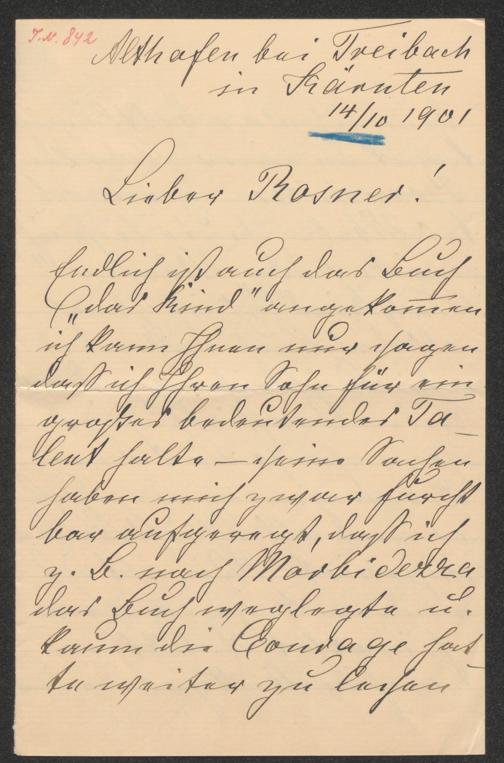 J.N. 842
Althofen bei Treibach
in Kärnten
14/10 1901
Lieber Rosner!
Endlich ist auch das Buch
(„das Kind" angekom̅en
ich kann Ihnen nur sagen
daß ich Ihren Sohn für ein
großes bedeutendes Ta-
lent halte – seine Sachen
haben mich zwar furcht
bar aufgeregt, daß ich
z. B. nach Morbidezza
das Buch weglegte u.
kaum die Courage hat
te weiter zu lesen